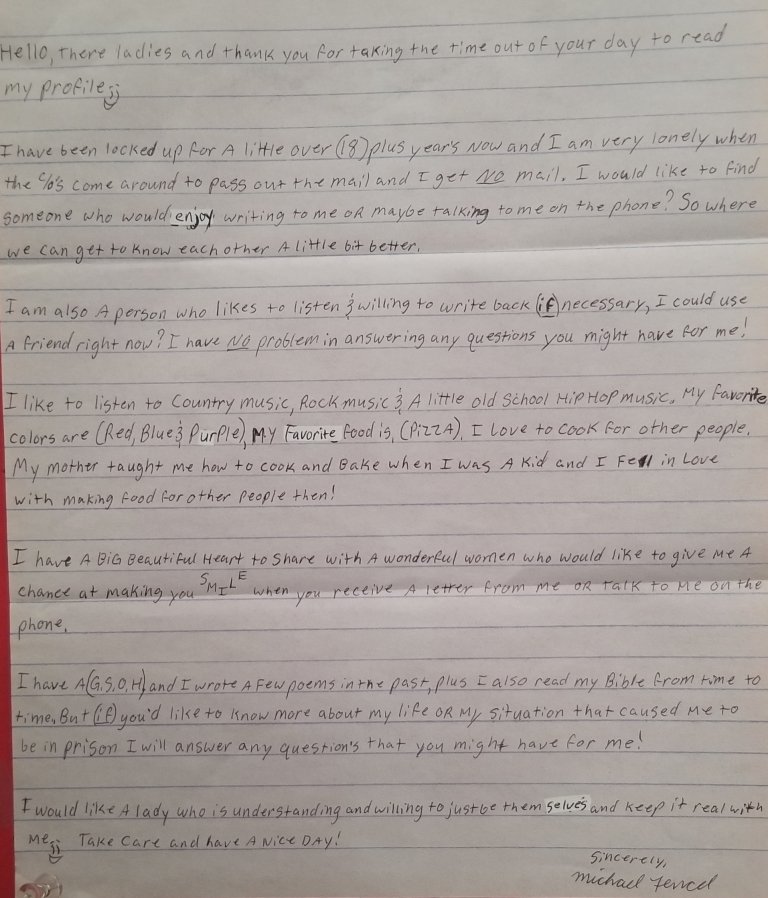 Hello, There ladies and thank you for taking the time out of your day to read
my profile
I have been locked up for A little over (18) plus year's Now and I am very lonely when
the c/o's come around to pass out the mail and I get NO mail. I would like to find
someone who would enjoy writing to me OR maybe talking to me on the phone? So where
we can get to know each other A little bit better.
I am also A person who likes to listen & willing to write back (if) necessary, I could use
A friend right now? I have NO problem in answering any questions you might have for me!
I like to listen to Country music, Rock music & A little old School Hip Hop music. My favorite
colors are (Red, Blue & Purple), My Favorite food is, (PizzA), I Love to cook for other people.
My mother taught me how to cook and Bake when I was A Kid and I Fell in Love
with making food for other people then!
I have A BiG Beautiful Heart to Share with A wonderful women who would like to give Me A
chance at making you SMILE when you receive A letter from me OR TALK to Me on the
phone.
I have A (G.S.O.H) and I wrote A Few poems in the past, plus I also read my Bible from time to
time. But (if) you'd like to know more about my life OR My situation that caused Me to
be in prison I will answer any question's that you might have for me!
I would like A lady who is understanding and willing to just be them selves and keep it real with
Me. Take Care and have A Nice DAY!
Sincerely,
Michael